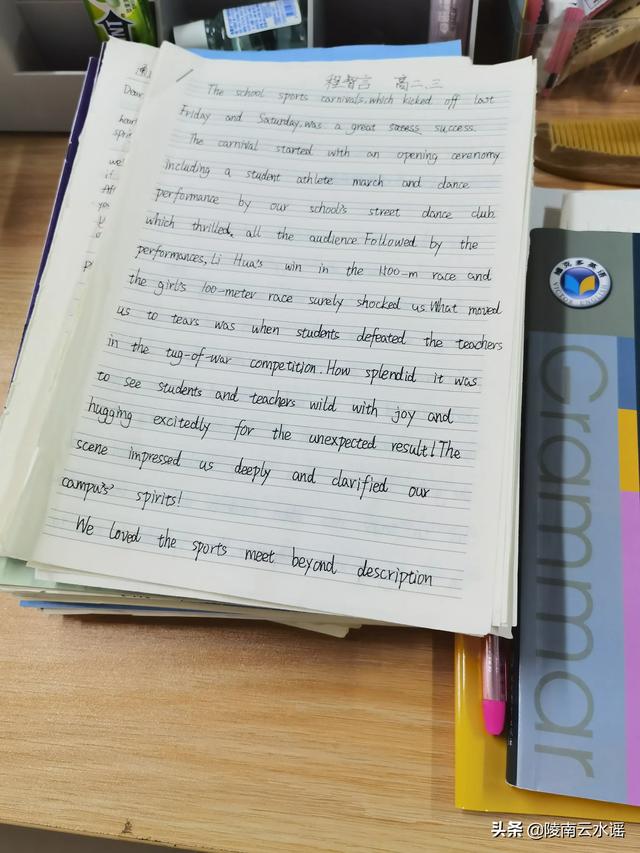 程智言 高二.三
The school sports carnivals, which kicked off last
Friday and Saturday, was a great success.
The carnival started with an opening ceremony
including a student athlete march and dance
performance by our school's street dance club
which thrilled all the audience. Followed by the
performances, Li Hua's win in the 1100-m race and
the girl's 100-meter race surely shocked us. What moved
us to tears was when students defeated the teachers
in the tug-of-war competition. How splendid it was
to see students and teachers wild with joy and
hugging excitedly for the unexpected result! The
scene impressed us deeply and clarified our
campus' spirits!
We loved the sports meet beyond description
Dear
维克多英语
VICTOR ENGLISH
Grammar
头条 @陵南云水谣